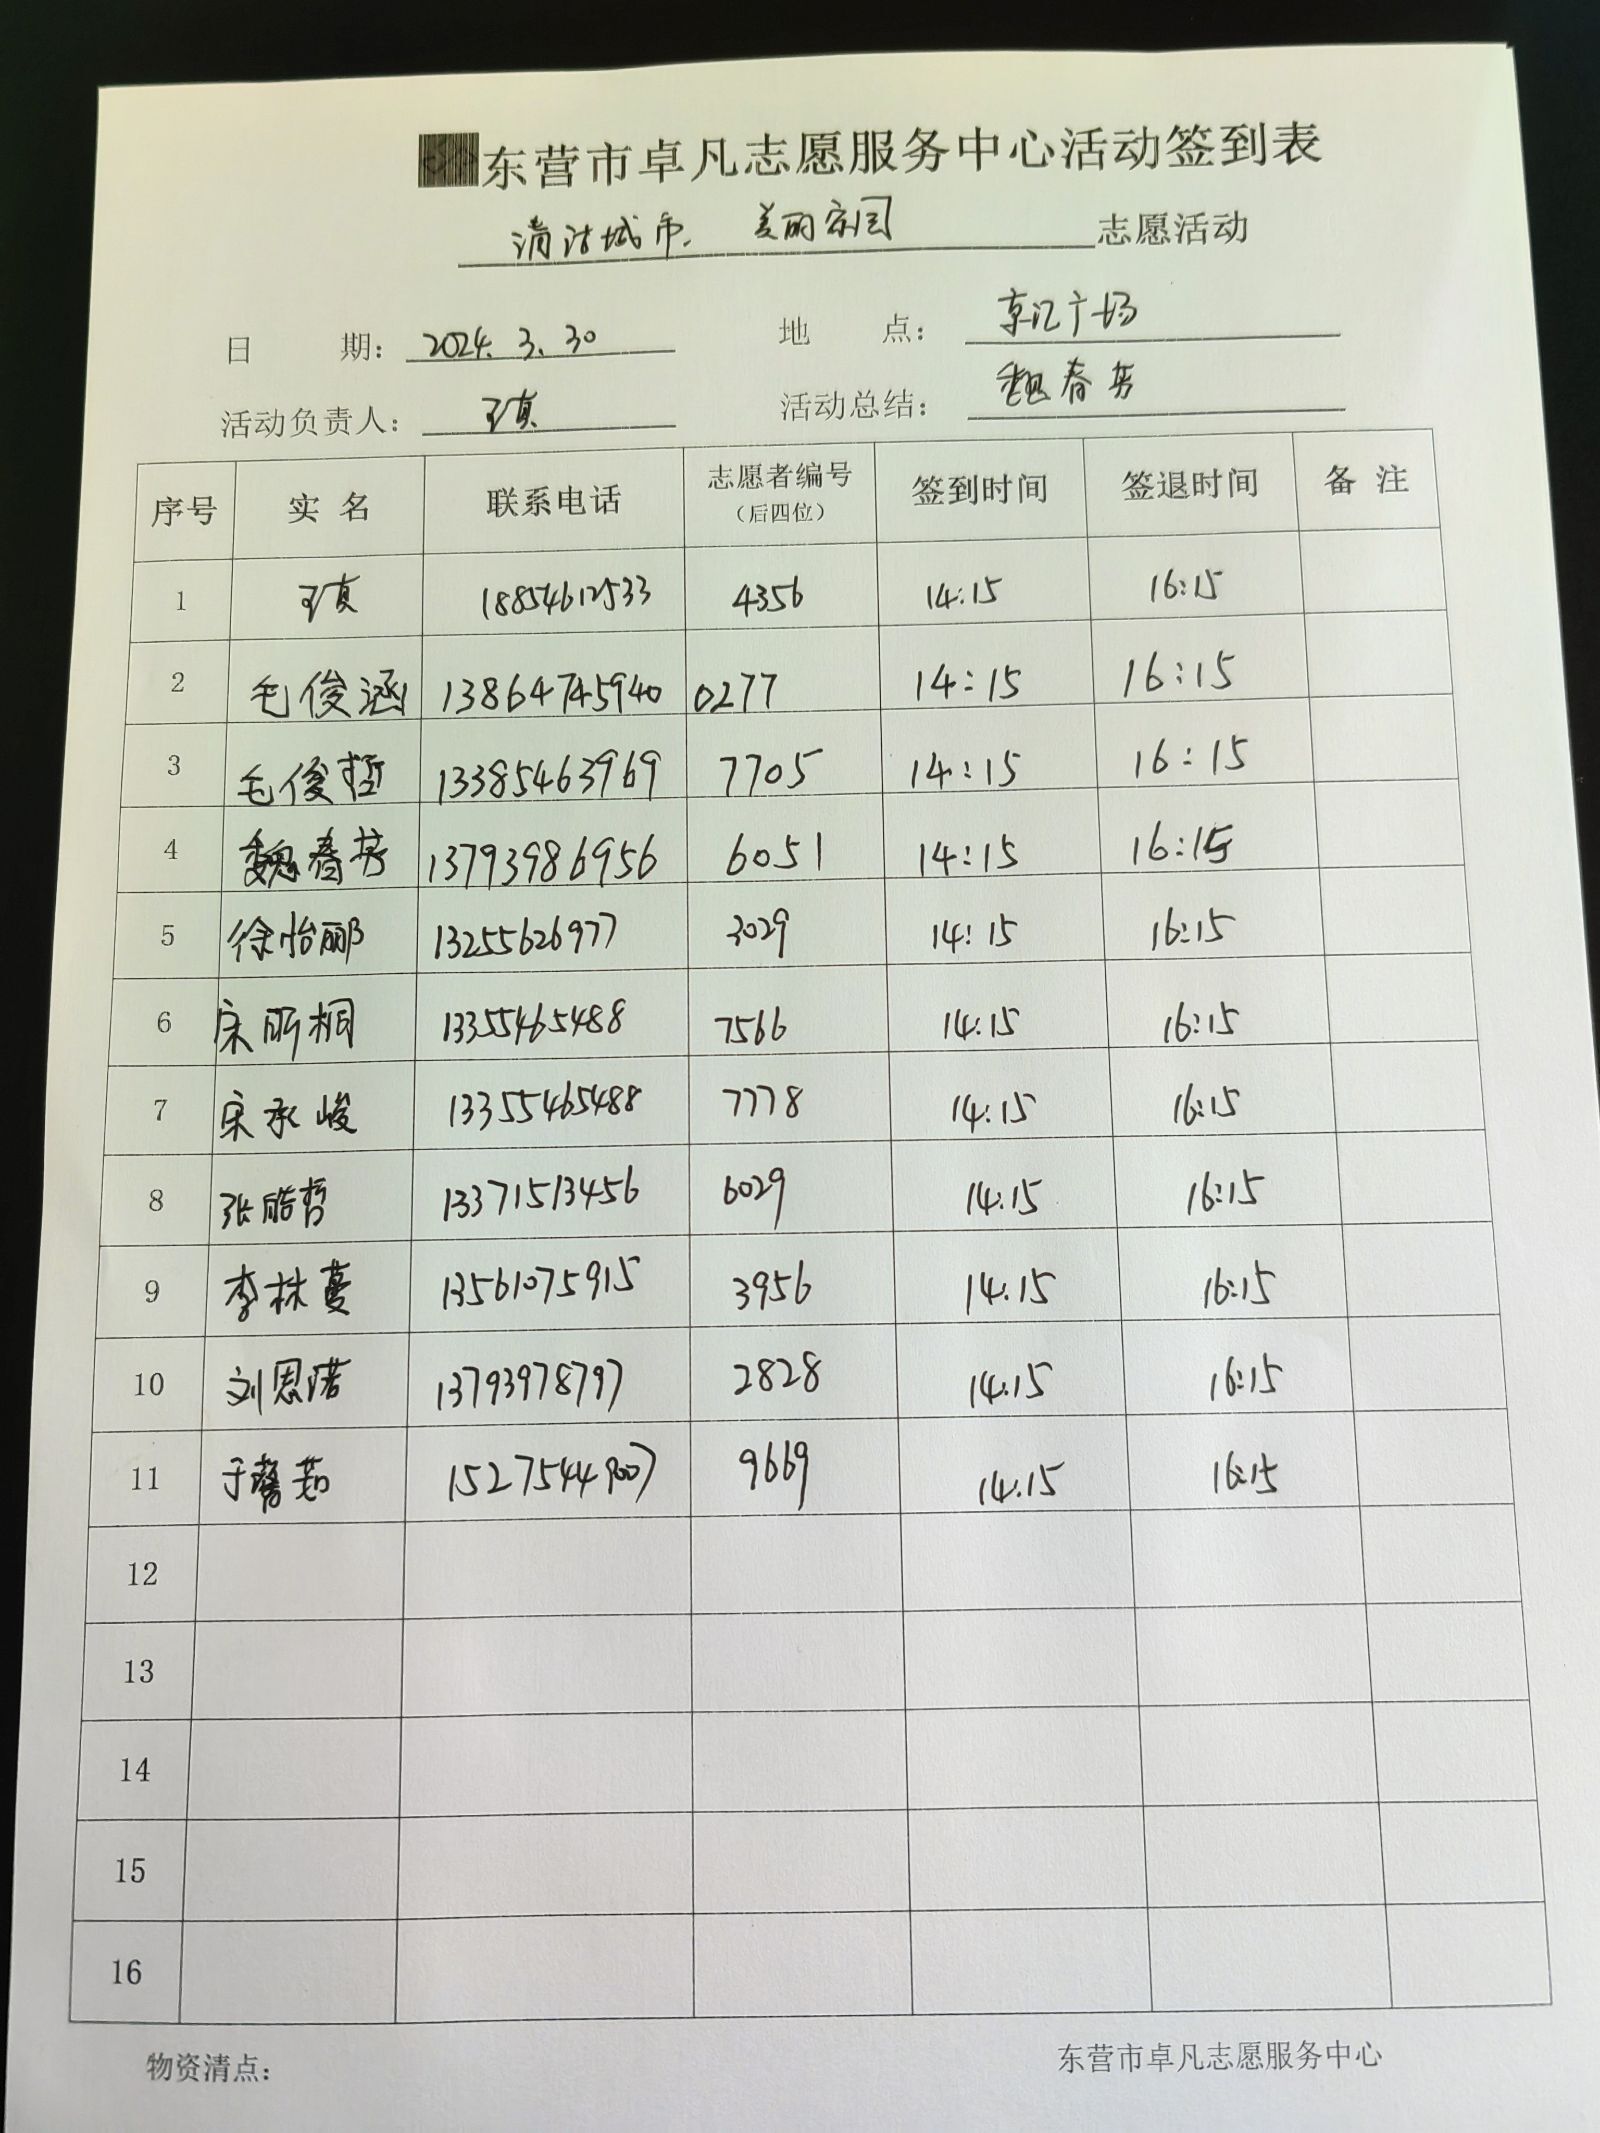 东营市卓凡志愿服务中心活动签到表
清洁城市、美丽家园 志愿活动
日 期： 2024.3.30 地 点： 京汇广场
活动负责人： 王真 活动总结： 魏春芳
序号 实 名 联系电话 志愿者编号 签到时间 签退时间 备 注
（后四位）
1 王真 18854612533 4356 14:15 16:15
2 毛俊涵 13864745940 0277 14:15 16:15
3 毛俊哲 13385463969 7705 14:15 16:15
4 魏春芳 13793986956 6051 14:15 16:15
5 徐怡郦 13255626977 3029 14:15 16:15
6 宋昕桐 13355465488 7566 14:15 16:15
7 宋承峻 13355465488 7778 14:15 16:15
8 张皓哲 13371513456 6029 14:15 16:15
9 李林蔓 13561075915 3956 14:15 16:15
10 刘恩诺 13793978797 2828 14:15 16:15
11 于馨茹 15275449007 9669 14:15 16:15
12
13
14
15
16
物资清点： 东营市卓凡志愿服务中心